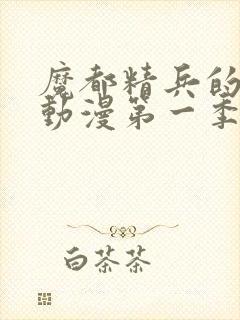 魔都精兵的
動漫第一季
白茶茶